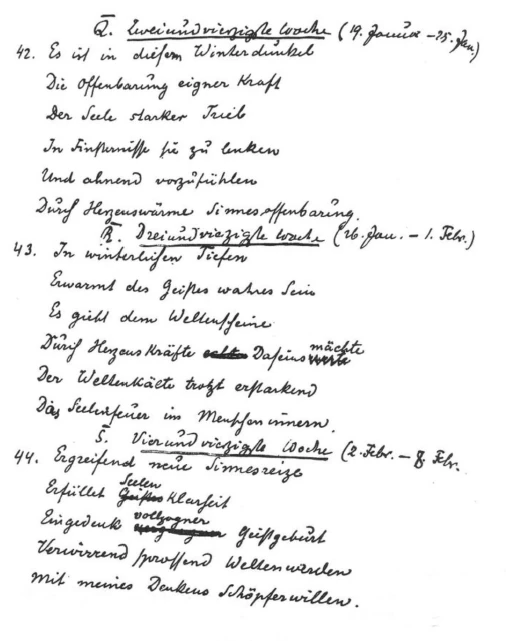 Q. Zweiundvierzigste Woche (19. Januar – 25. Jan.)
42. Es ist in diesem Winterdunkel
Die Offenbarung eigner Kraft
Der Seele starker Trieb
In Finsternisse sie zu lenken
Und ahnend vorzufühlen
Durch Herzenswärme Sinnesoffenbarung.
R. Dreiundvierzigste Woche (26. Jan. – 1. Febr.)
43. In winterlichen Tiefen
Erwarmt des Geistes wahres Sein
Es giebt dem Weltenscheine
Durch Herzenskräfte Daseinsmächte
Der Weltenkälte trotzt erstarkend
Das Seelenfeuer im Menscheninnern.
S. Vierundvierzigste Woche (2. Febr. – 8 Febr.
44. Ergreifend neue Sinnesreize
Erfüllet Seelenklarheit
Eingedenk vollzogner Geistgeburt
Verwirrend sprossend Weltenwerden
Mit meines Denkens Schöpferwillen.